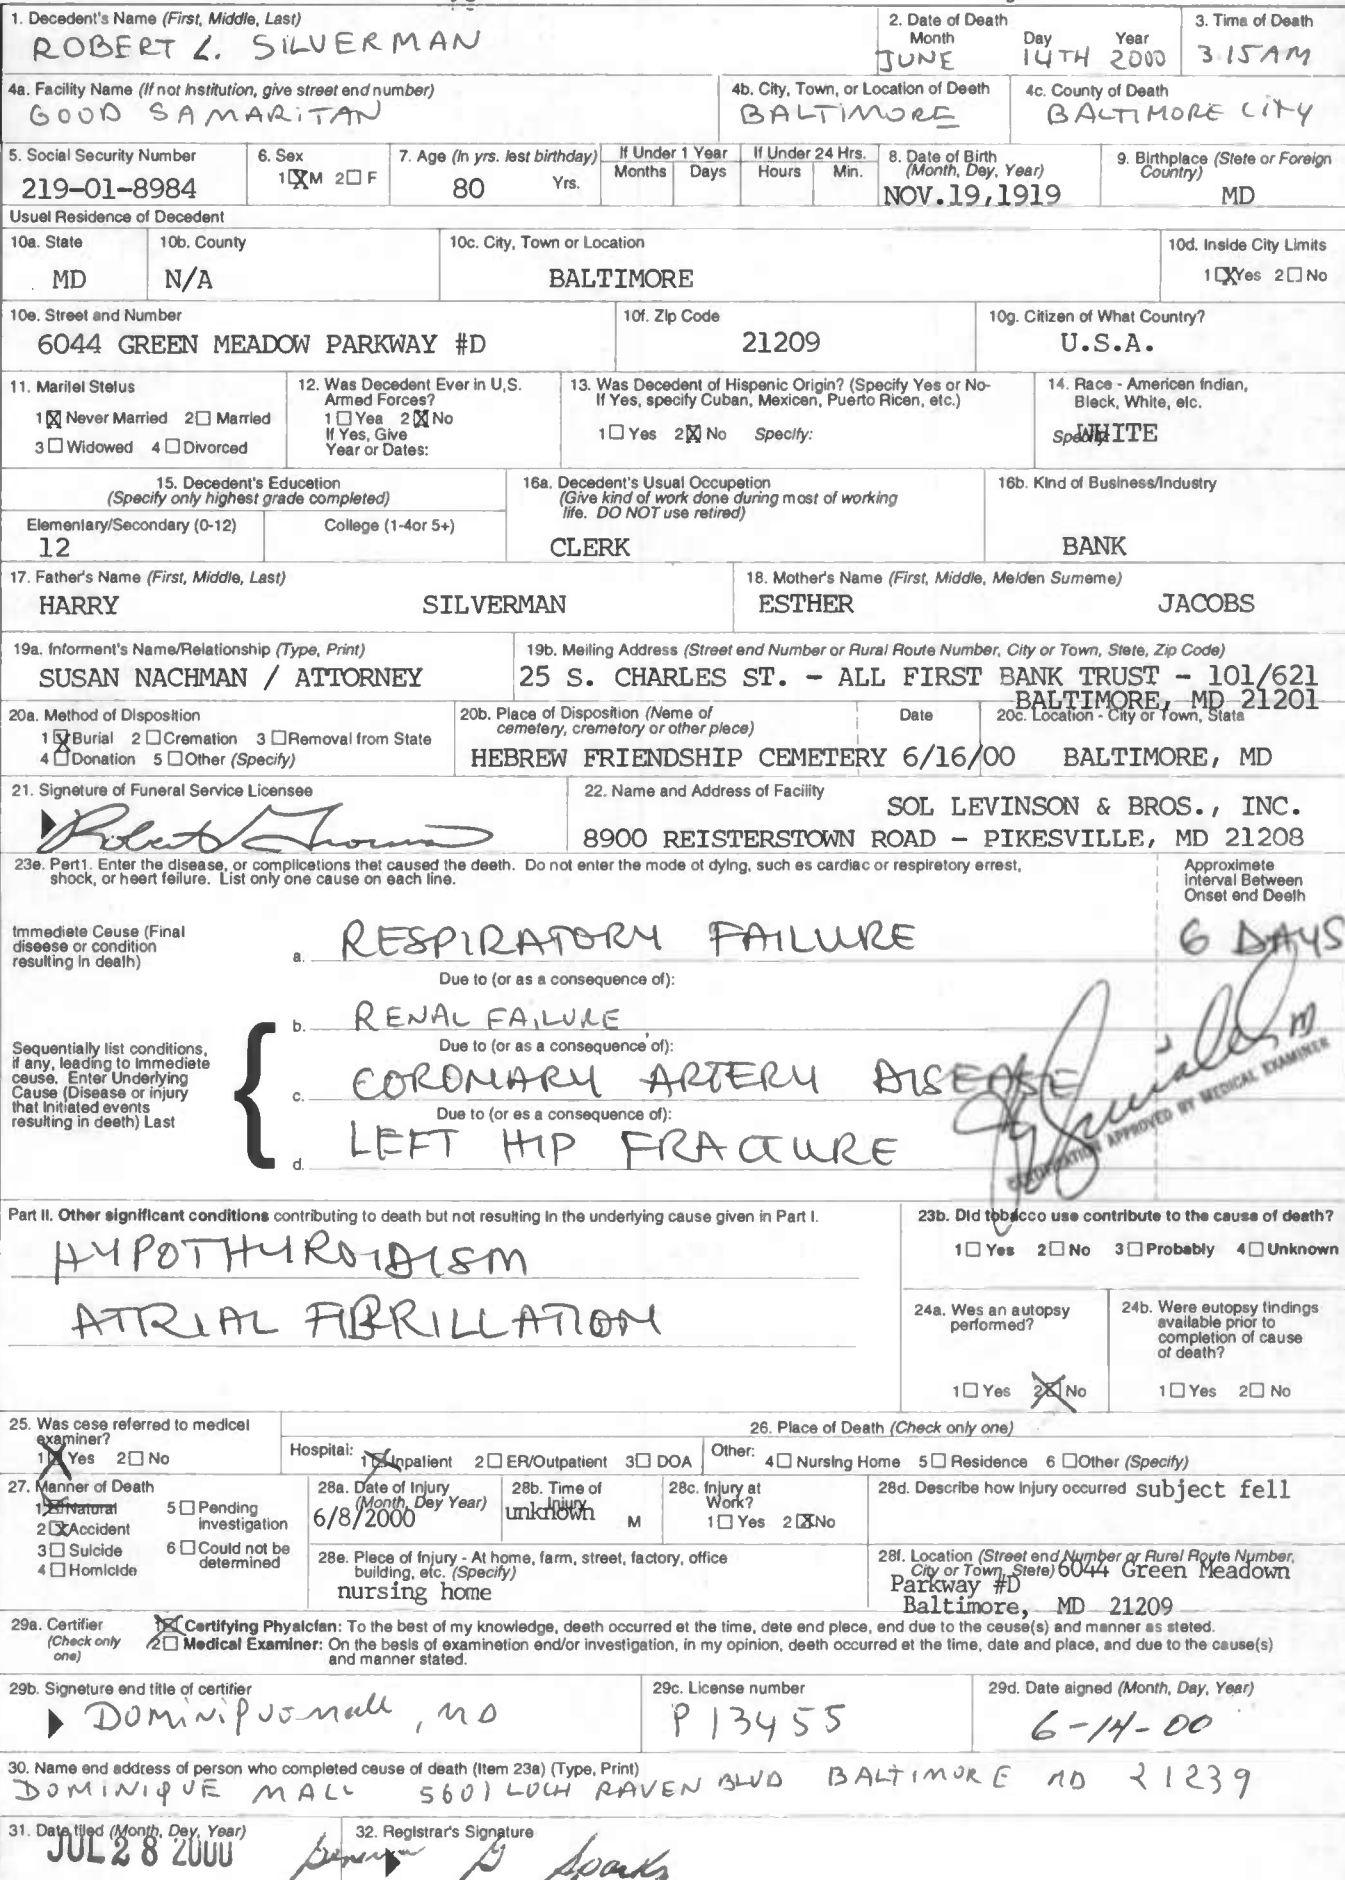 1. Decedent's Name (First, Middle, Last)
ROBERT L. SILVERMAN
2. Date of Death
Month Day Year
JUNE 14TH 2000
3. Time of Death
3 15 AM
4a. Facility Name (If not Institution, give street end number)
GOOD SAMARITAN
4b. City, Town, or Location of Deeth
BALTIMORE
4c. County of Death
BALTIMORE CITY
5. Social Security Number
219-01-8984
6. Sex
1☒M 2☐F
7. Age (In yrs. lest birthday)
80 Yrs.
If Under 1 Year
Months Days
If Under 24 Hrs.
Hours Min.
8. Date of Birth
(Month, Dey, Year)
NOV.19,1919
9. Birthplace (Stete or Foreign
Country)
MD
Usuel Residence of Decedent
10a. State
MD
10b. County
N/A
10c. City, Town or Location
BALTIMORE
10d. Inside City Limits
1☒Yes 2☐No
10e. Street and Number
6044 GREEN MEADOW PARKWAY #D
10f. Zip Code
21209
10g. Citizen of What Country?
U.S.A.
11. Maritel Stelus
1☒Never Married 2☐Married
3☐Widowed 4☐Divorced
12. Was Decedent Ever in U,S.
Armed Forces?
1☐Yea 2☒No
If Yes, Give
Year or Dates:
13. Was Decedent of Hispenic Origin? (Specify Yes or No-
If Yes, specify Cuban, Mexicen, Puerto Ricen, etc.)
1☐Yes 2☒No Specify:
14. Race - Americen Indian,
Bleck, White, elc.
Specify WHITE
15. Decedent's Education
(Specify only highest grade completed)
Elemenlary/Secondary (0-12)
12
College (1-4or 5+)
16a. Decedent's Usual Occupetion
(Give kind of work done during most of working
life. DO NOT use retired)
CLERK
16b. Kind of Business/Industry
BANK
17. Father's Name (First, Middle, Last)
HARRY SILVERMAN
18. Mother's Name (First, Middle, Meiden Sumeme)
ESTHER JACOBS
19a. Informent's Name/Relationship (Type, Print)
SUSAN NACHMAN / ATTORNEY
19b. Meiling Address (Street end Number or Rural Route Number, City or Town, State, Zip Code)
25 S. CHARLES ST. - ALL FIRST BANK TRUST - 101/621
BALTIMORE, MD 21201
20a. Method of Disposition
1☒Burial 2☐Cremation 3☐Removal from State
4☐Donation 5☐Other (Specify)
20b. Place of Disposition (Neme of
cemetery, cremetory or other piece)
HEBREW FRIENDSHIP CEMETERY
Date
6/16/00
20c. Location - City or Town, Stata
BALTIMORE, MD
21. Signeture of Funeral Service Licensee
Robert
22. Name and Address of Facility
SOL LEVINSON & BROS., INC.
8900 REISTERSTOWN ROAD - PIKESVILLE, MD 21208
23e. Part1. Enter the disease, or complicetions thet caused the deeth. Do not enter the mode of dying, such es cardiac or respiretory errest,
shock, or heert feilure. List only one cause on each line.
Approximete
interval Between
Onset end Deelh
Immediete Ceuse (Final
diseese or condition
resulting in dealh)
a. RESPIRATORY FAILURE
6 DAYS
Due to (or as a consequence of):
b. RENAL FAILURE
Due to (or as a consequence of):
Sequentially list conditions,
if any, leading to Immediete
ceuse. Enter Underlying
Cause (Disease or injury
that Initiated events
resulting in deeth) Last
c. CORONARY ARTERY DISEASE
Due to (or es a consequence of):
d. LEFT HIP FRACTURE
CERTIFICATION APPROVED BY MEDICAL EXAMINER
Part II. Other significant conditions contributing to death but not resulting in the underlying cause given in Part I.
HYPOTHYROIDISM
ATRIAL FIBRILLATION
23b. Did tobacco use contribute to the cause of death?
1☐Yes 2☐No 3☐Probably 4☐Unknown
24a. Wes an autopsy
performed?
1☐Yes 2☒No
24b. Were eutopsy findings
available prior to
completion of cause
of death?
1☐Yes 2☐No
25. Was cese referred to medicel
examiner?
1☒Yes 2☐No
26. Place of Death (Check only one)
Hospital: 1☒Inpalient 2☐ER/Outpatient 3☐DOA
Other: 4☐Nursing Home 5☐Residence 6☐Other (Specify)
27. Manner of Death
1☒Natural 5☐Pending
investigation
2☒Accident
3☐Suicide 6☐Could not be
determined
4☐Homicide
28a. Date of Injury
(Month, Dey Year)
6/8/2000
28b. Time of
Injury
unknown M
28c. Injury at
Work?
1☐Yes 2☒No
28d. Describe how Injury occurred subject fell
28e. Plece of Injury - At home, farm, street, factory, office
building, etc. (Specify)
nursing home
28f. Location (Street end Number or Rurel Route Number,
City or Town, Stete) 6044 Green Meadown
Parkway #D
Baltimore, MD 21209
29a. Certifier
(Check only
one)
1☒Certifying Physician: To the best of my knowledge, deeth occurred et the time, dete end plece, end due to the ceuse(s) and manner as steted.
2☐Medical Examiner: On the besis of examinetion end/or investigation, in my opinion, deeth occurred et the time, date and place, and due to the cause(s)
and manner stated.
29b. Signeture end title of certifier
Dominique Mall, MD
29c. License number
P 13455
29d. Date aigned (Month, Day, Year)
6-14-00
30. Name end address of person who completed ceuse of death (Item 23a) (Type, Print)
DOMINIQUE MALL 5601 LOCH RAVEN BLVD BALTIMORE MD 21239
31. Date tiled (Month, Dey, Year)
JUL 28 2000
32. Registrar's Signature
Sparks